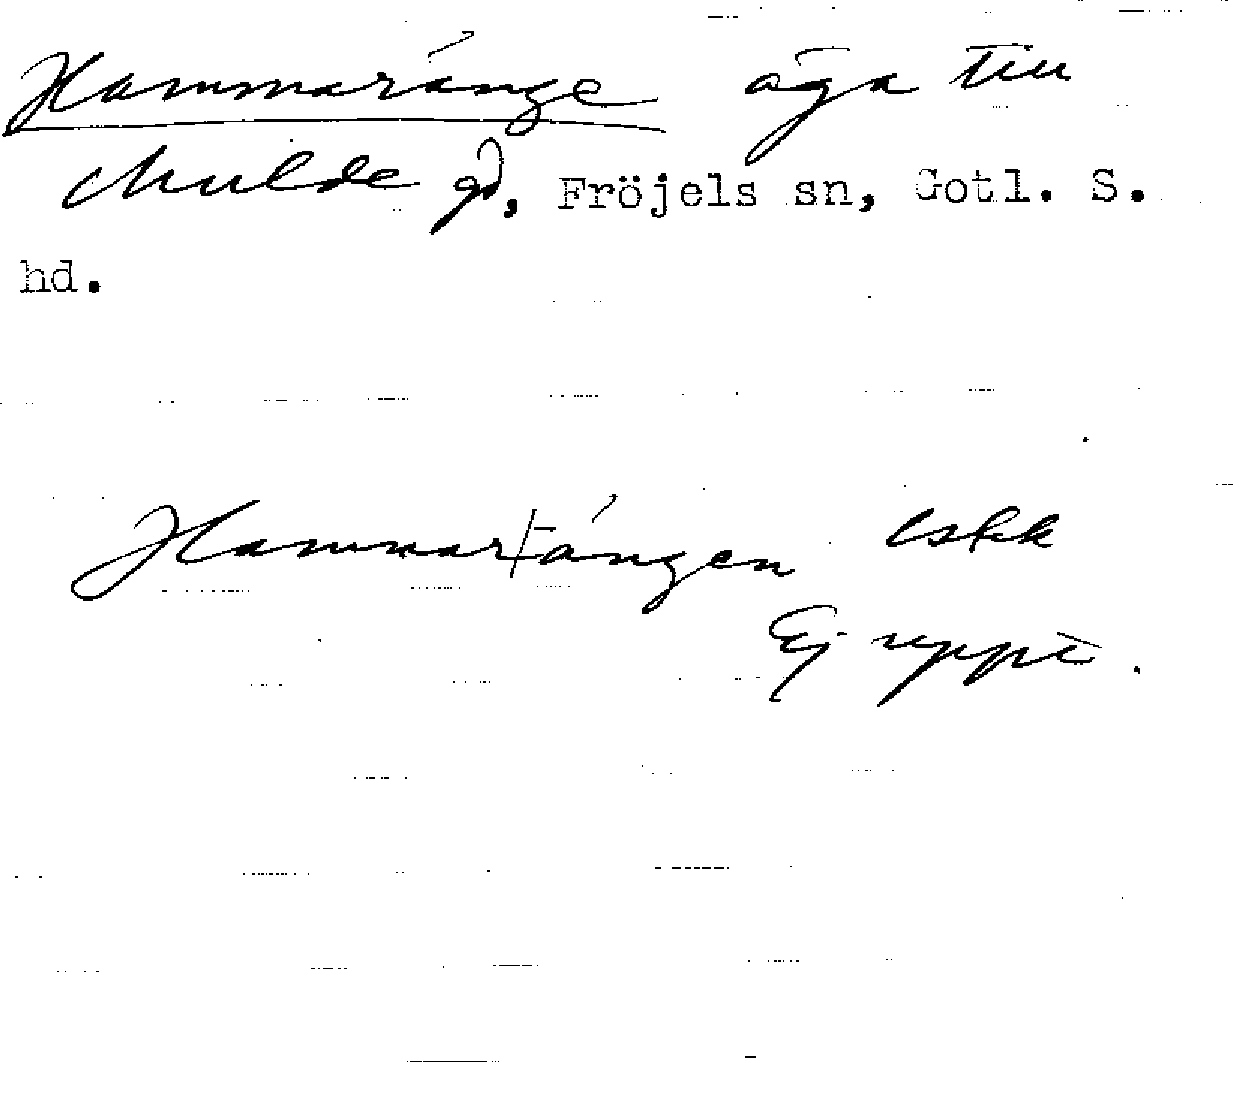 Hammaränge äga till
Mulde gd, Fröjels sn, Gotl. S.
hd.
Hammarängen
Ej uppt.